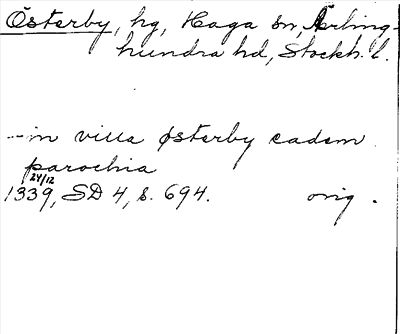 Österby, hg, Haga sn, Ärling-
hundra hd, Stockh. l.
-- in villa østerby eadem
parochia
24/12
1339, SD 4, s. 694. orig.